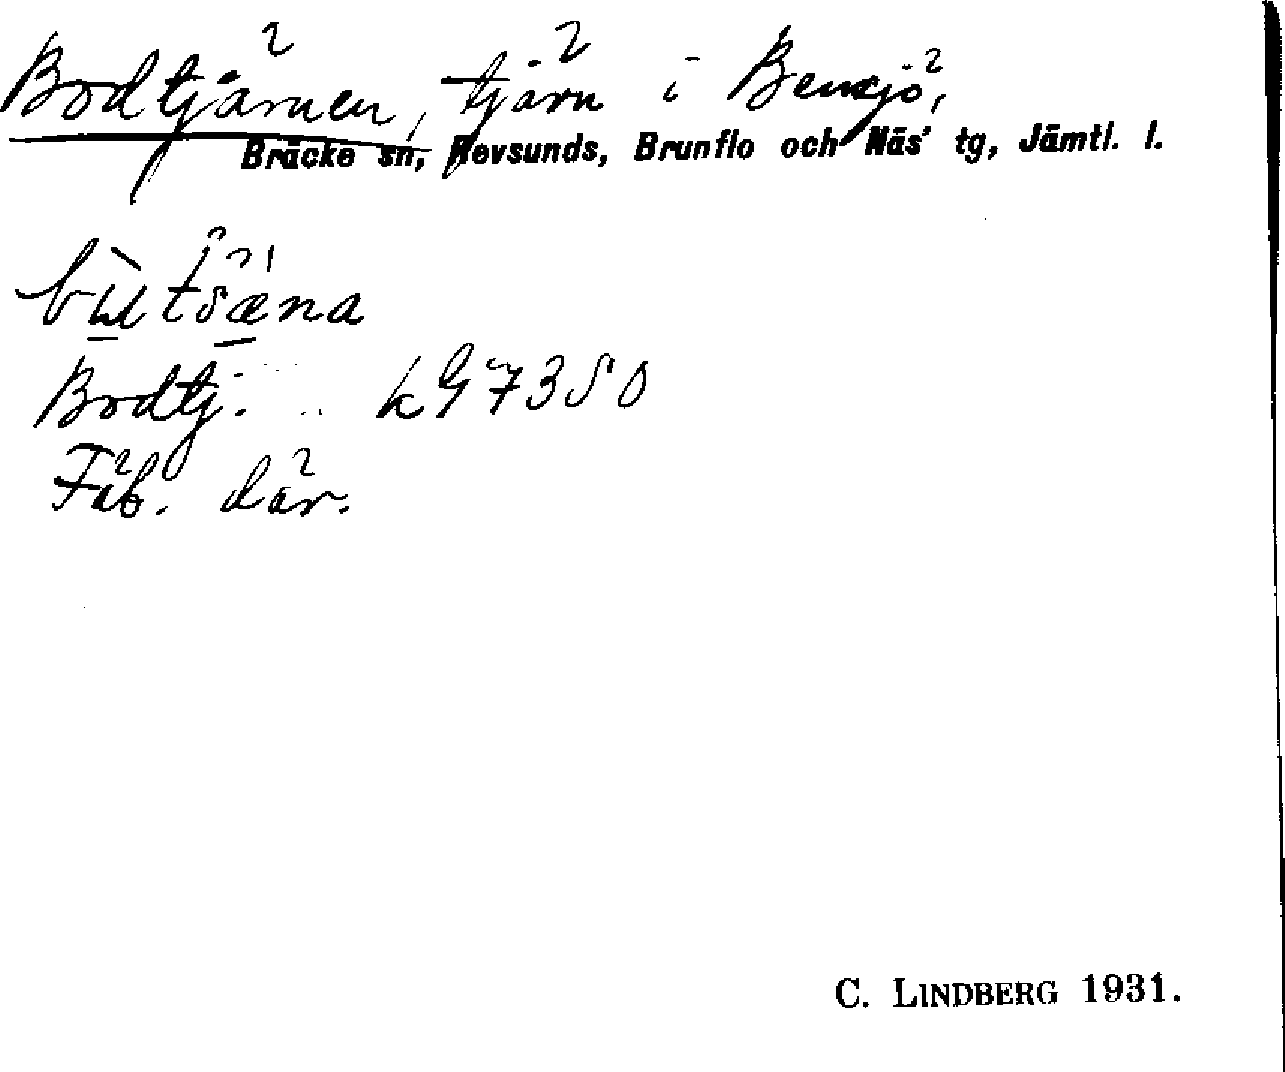 Bodtjärnen, tjärn i Bensjö,
Bräcke sn, Revsunds, Brunflo och Näs' tg, Jämtl. l.
Bodtj. kG 7350
Fäb. där.
C. LINDBERG 1931.